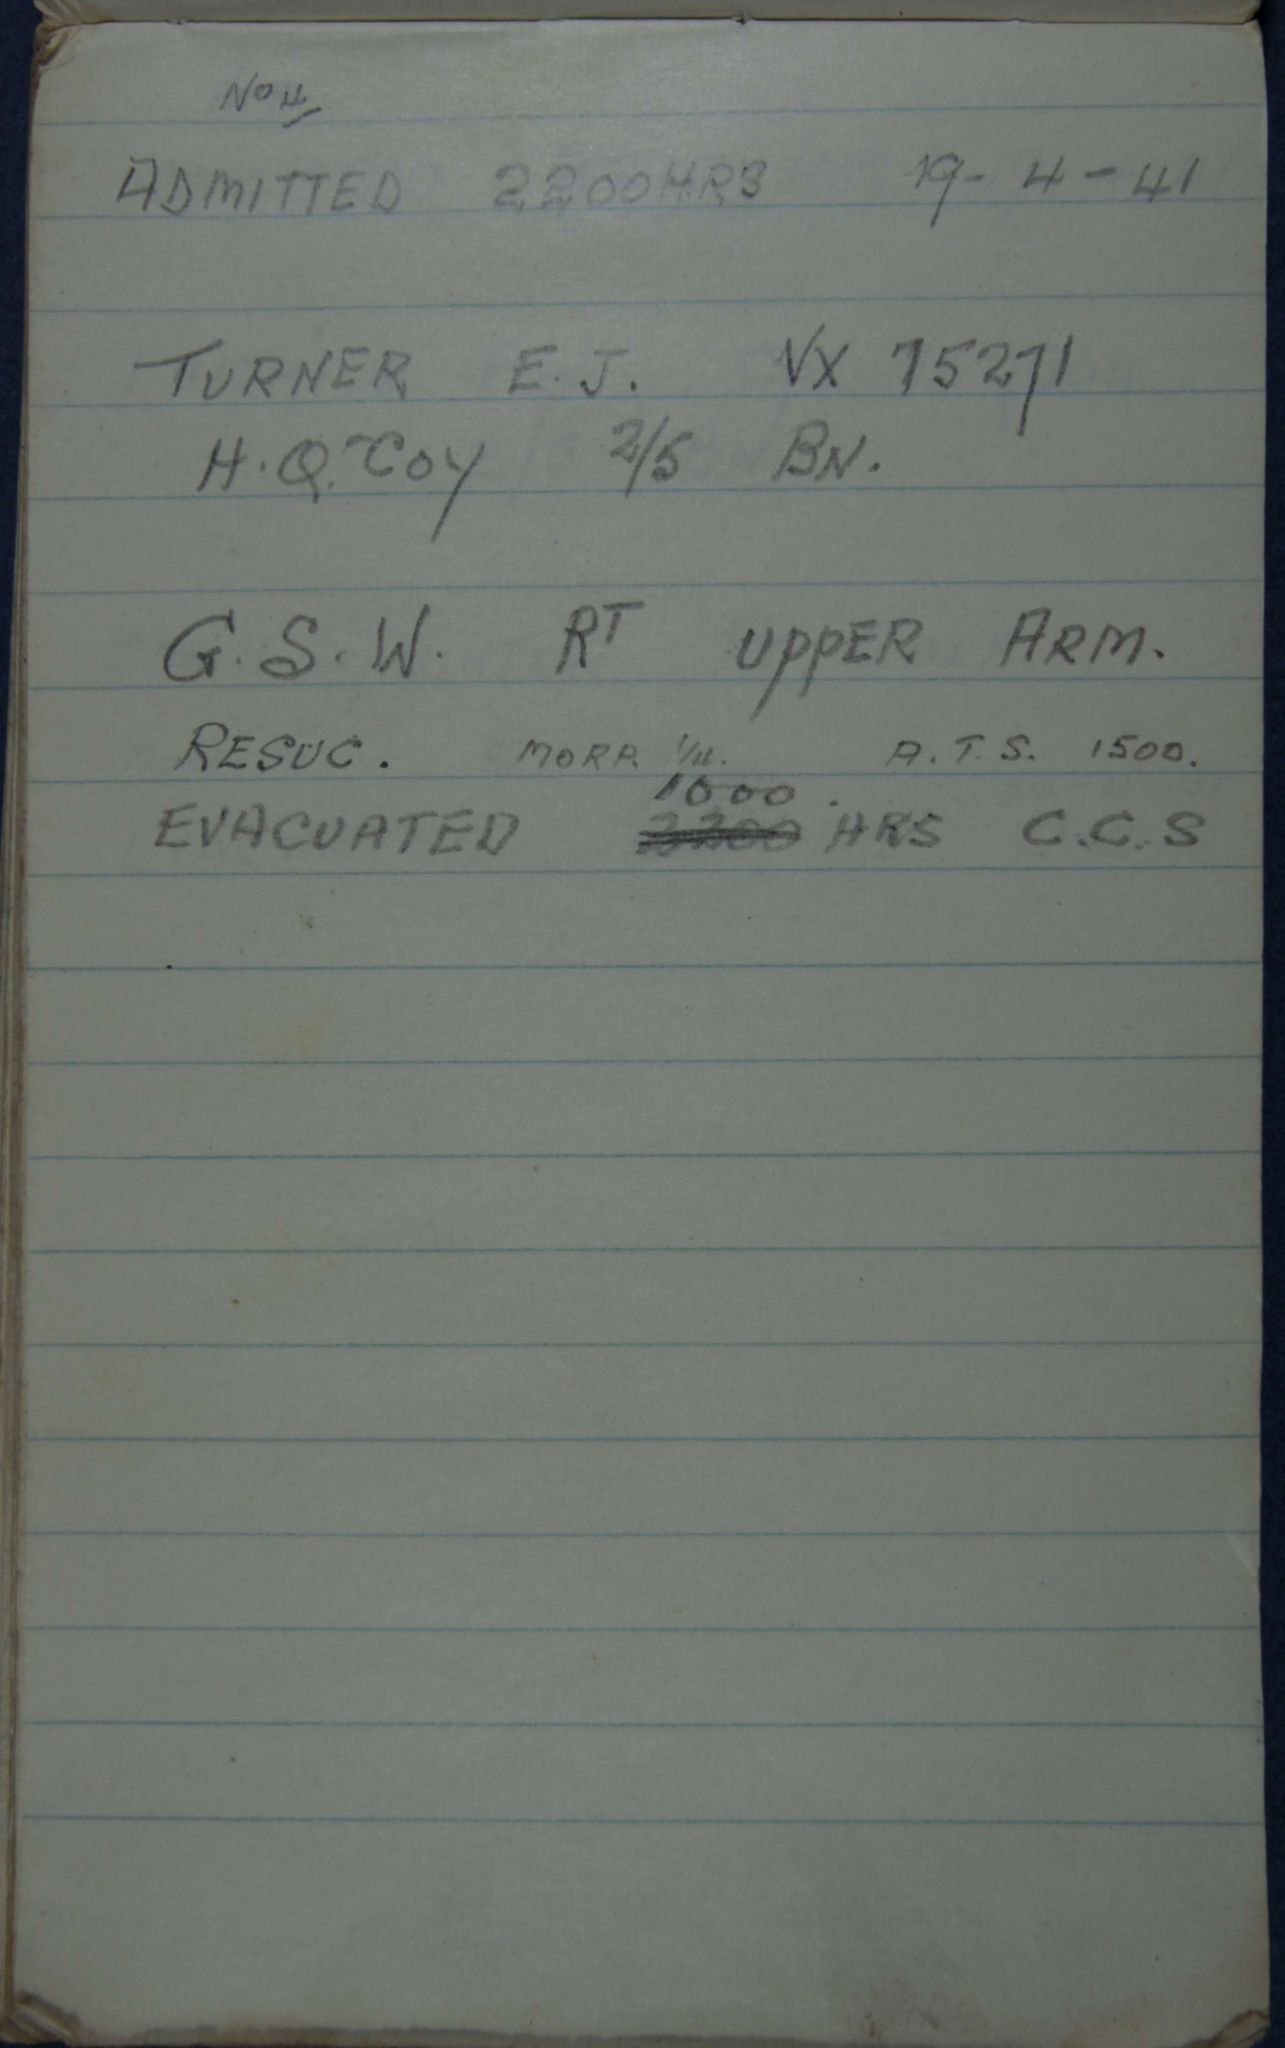 No 4
ADMITTED 2200HRS 19-4-41
TURNER E.J. VX 15271
H.Q. Coy 2/5 BN.
G.S.W. RT UPPER ARM.
RESUC. MORP. 1/4. A.T.S. 1500.
1000.
EVACUATED 2200 HRS C.C.S